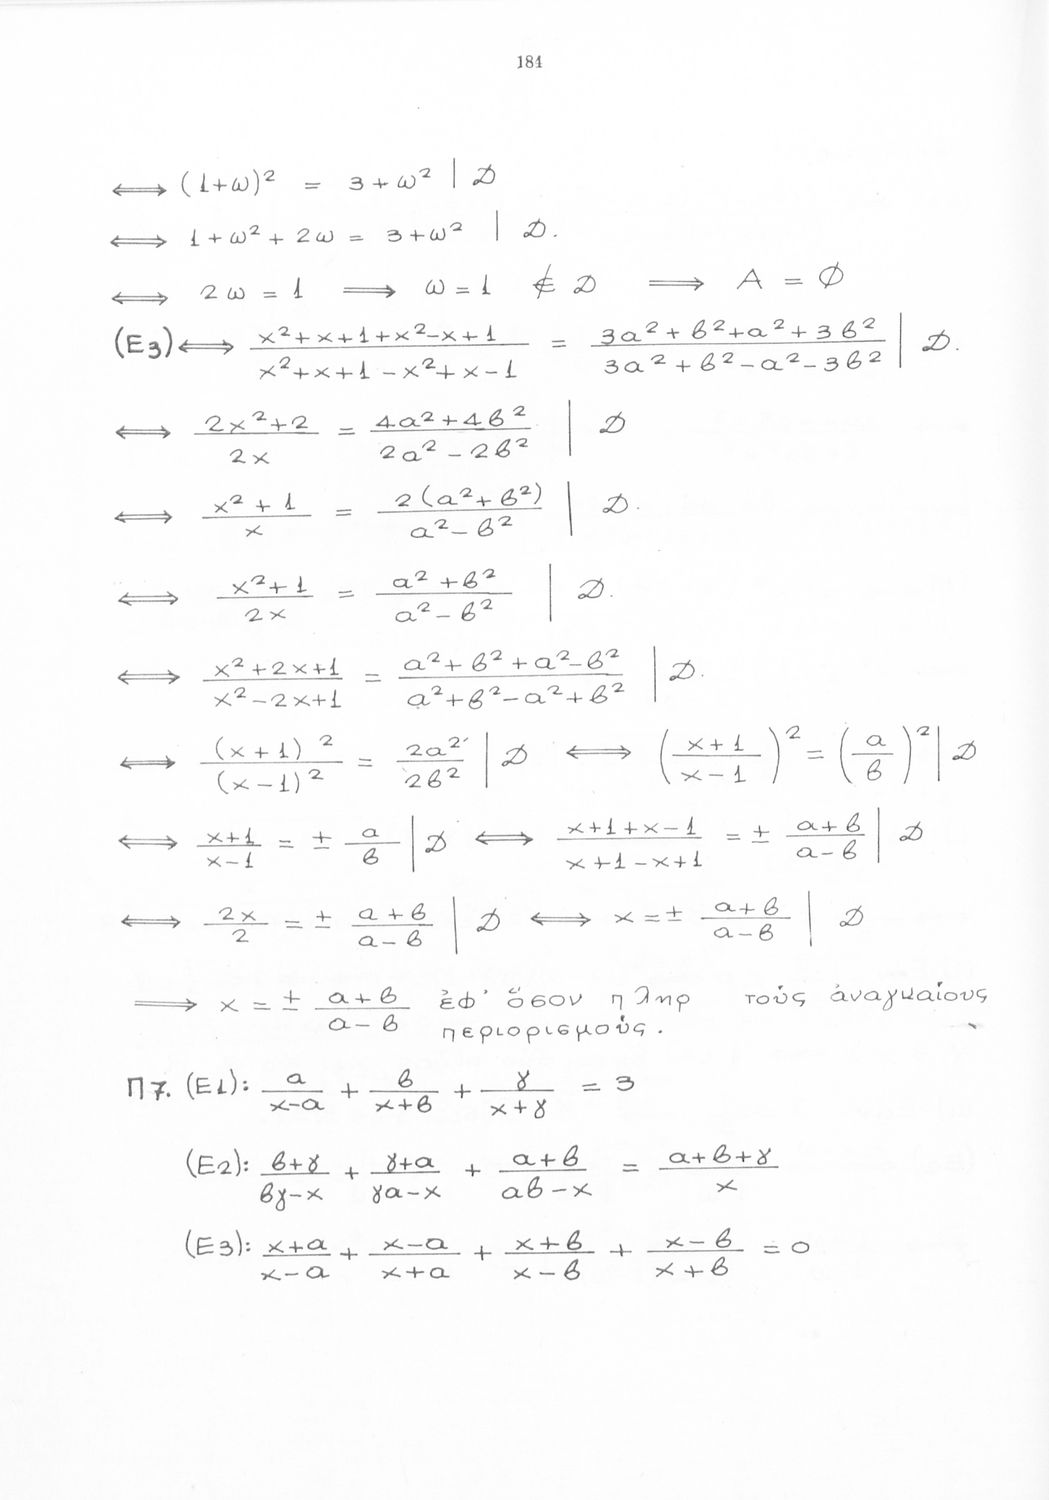 184
⟺ (1+ω)² = 3+ω² | D
⟺ 1+ω²+2ω = 3+ω² | D.
⟺ 2ω = 1 ⟹ ω=1 ∉ D ⟹ A = ∅
(E3) ⟺ (x²+x+1+x²-x+1)/(x²+x+1-x²+x-1) = (3α²+β²+α²+3β²)/(3α²+β²-α²-3β²) | D.
⟺ (2x²+2)/(2x) = (4α²+4β²)/(2α²-2β²) | D
⟺ (x²+1)/x = 2(α²+β²)/(α²-β²) | D.
⟺ (x²+1)/(2x) = (α²+β²)/(α²-β²) | D.
⟺ (x²+2x+1)/(x²-2x+1) = (α²+β²+α²-β²)/(α²+β²-α²+β²) | D.
⟺ (x+1)²/(x-1)² = 2α²/2β² | D ⟺ ((x+1)/(x-1))² = (α/β)² | D
⟺ (x+1)/(x-1) = ± α/β | D ⟺ (x+1+x-1)/(x+1-x+1) = ± (α+β)/(α-β) | D
⟺ 2x/2 = ± (α+β)/(α-β) | D ⟺ x = ± (α+β)/(α-β) | D
⟹ x = ± (α+β)/(α-β) ἐφ' ὅσον πληρ τούς ἀναγκαίους
περιορισμούς.
Π7. (E1): α/(x-α) + β/(x+β) + γ/(x+γ) = 3
(E2): (β+γ)/(βγ-x) + (γ+α)/(γα-x) + (α+β)/(αβ-x) = (α+β+γ)/x
(E3): (x+α)/(x-α) + (x-α)/(x+α) + (x+β)/(x-β) + (x-β)/(x+β) = 0